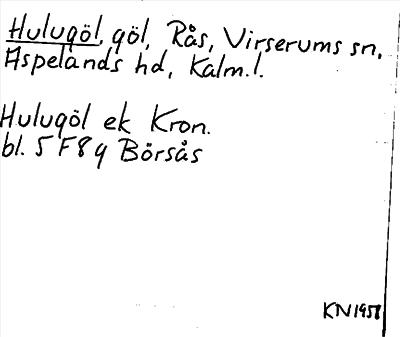 Hulugöl, göl, Rås, Virserums sn,
Aspelands hd, Kalm.l.
Hulugöl ek Kron.
bl. 5 F 8 g Börsås